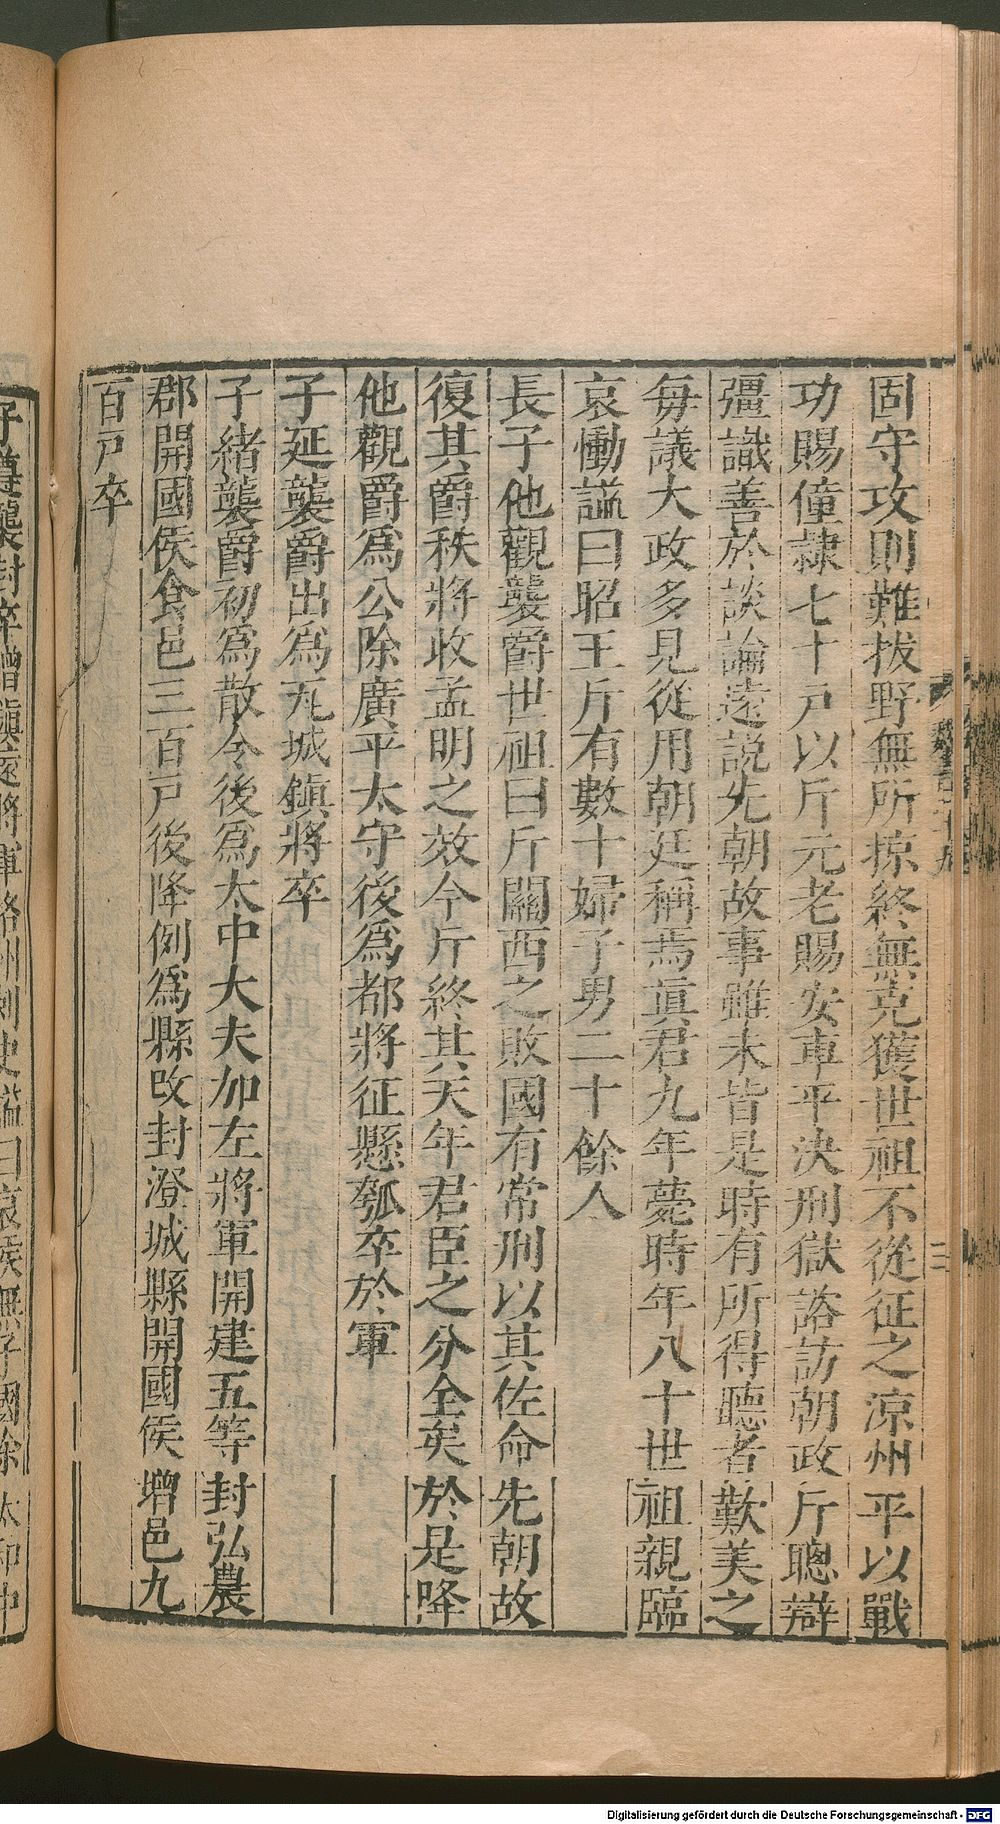 固守攻則難拔野無所掠終無克獲世祖不從征之涼州平以戰
功賜僮隸七十户以斤元老賜安車平決刑獄諮訪朝政斤聰辯
彊識善於談論遠說先朝故事雖未皆是時有所得聽者歎美之
每議大政多見從用朝廷稱焉眞君九年薨時年八十世祖親臨
哀慟謚曰昭王斤有數十婦子男二十餘人
長子他觀襲爵世祖曰斤關西之敗國有常刑以其佐命先朝故
復其爵秩將收孟明之效今斤終其天年君臣之分全矣於是降
他觀爵爲公除廣平太守後爲都將征懸瓠卒於軍
子延襲爵出爲瓦城鎮將卒
子緒襲爵初爲散令後爲太中大夫加左將軍開建五等封弘農
郡開國侯食邑三百户後降例爲縣改封澄城縣開國侯增邑九
百户卒
二
子遵襲封卒贈鎮遠將軍洛州刺史謚曰哀侯無子國除太和中
Digitalisierung gefördert durch die Deutsche Forschungsgemeinschaft - DFG